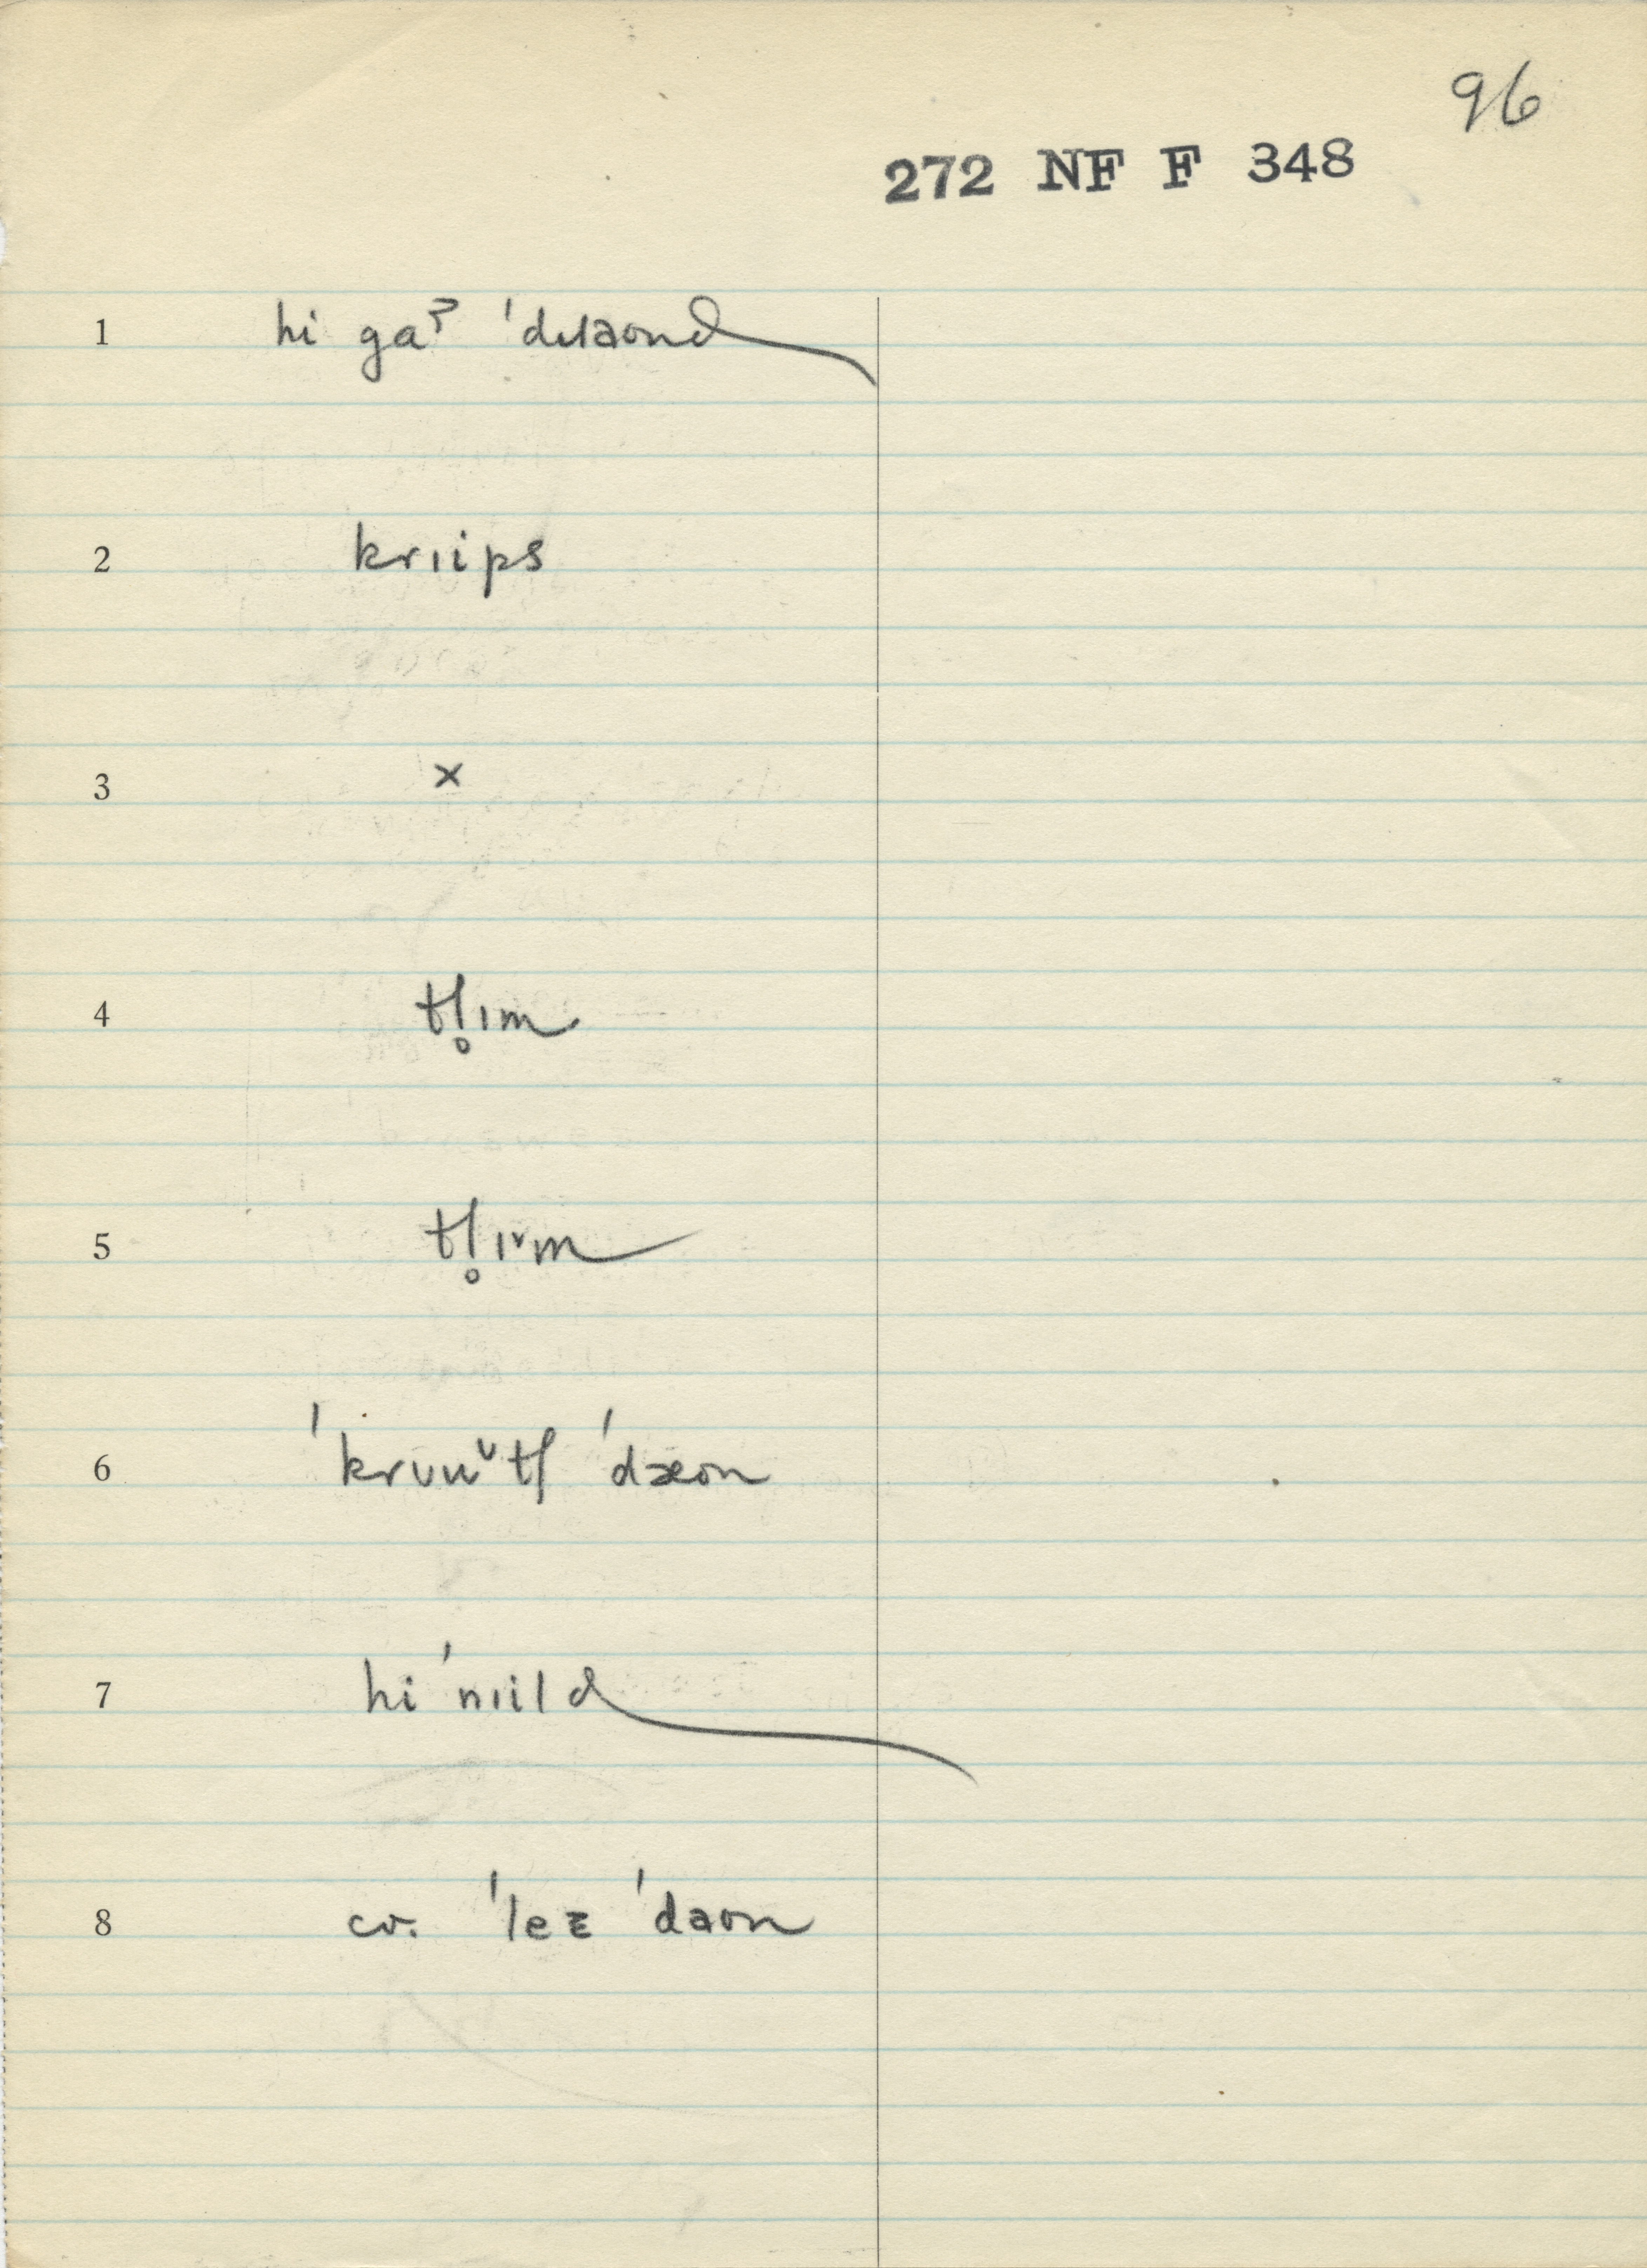 96
272 NF F 348
1 hi gaɜ ˈdɪlaond
2 krɪips
3 x
4 tl̥ɪm
5 tl̥ɪᵛm
6 ˈkrʊuᵛtʃ ˈdæon
7 hi ˈnɪild
8 cv. ˈleɛ ˈdaʊn